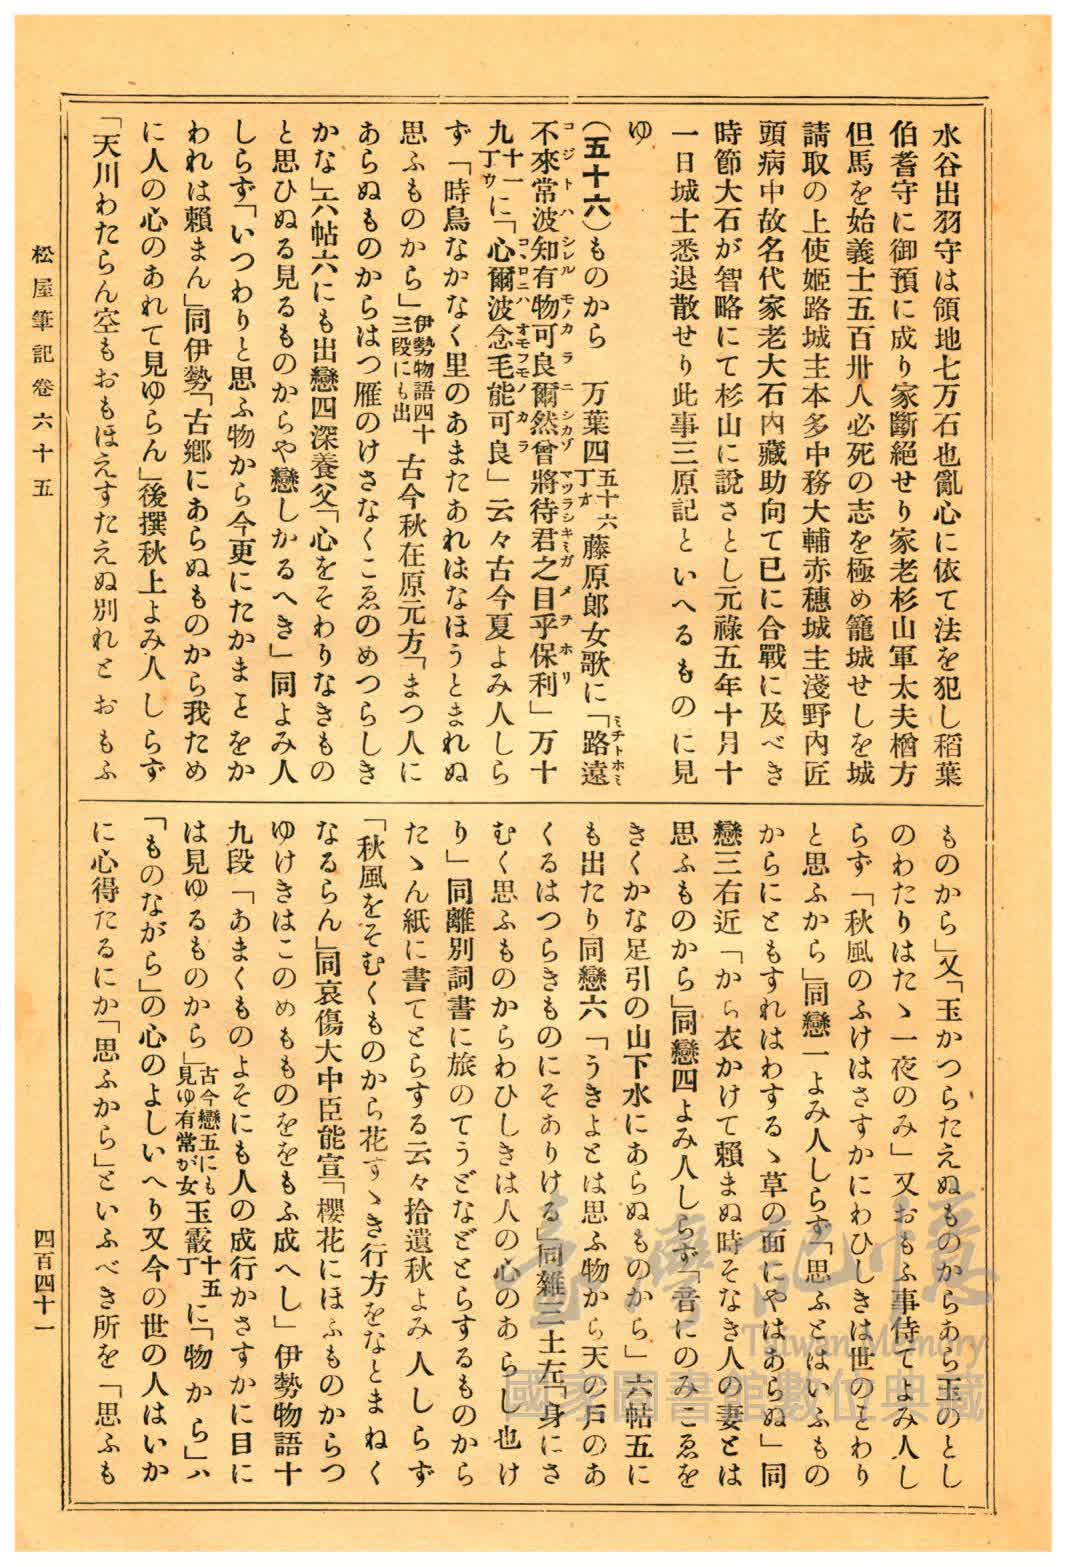 水谷出羽守は領地七万石也亂心に依て法を犯し稻葉
伯耆守に御預に成り家斷絕せり家老杉山軍太夫楢方
但馬を始義士五百卅人必死の志を極め籠城せしを城
請取の上使姬路城主本多中務大輔赤穗城主淺野內匠
頭病中故名代家老大石內藏助向て已に合戰に及べき
時節大石が智略にて杉山に說さとし元祿五年十月十
一日城士悉退散せり此事三原記といへるものに見
ゆ
(五十六)ものから 万葉四五十六丁オ藤原郞女歌に「路遠
ミチトホミ
不來常波知有物可良爾然曾將待君之目乎保利」万十
コジトハシレルモノカラニシカゾマツラシキミガメヲホリ
九十一丁ウに「心爾波念毛能可良」云々古今夏よみ人しら
コヽロニハオモフモノカラ
ず「時鳥なかなく里のあまたあれはなほうとまれぬ
思ふものから」伊勢物語四十三段にも出 古今秋在原元方「まつ人に
あらぬものからはつ雁のけさなくこゑのめつらしき
かな」六帖六にも出戀四深養父「心をそわりなきもの
と思ひぬる見るものからや戀しかるへき」同よみ人
しらず「いつわりと思ふ物から今更にたかまことをか
われは賴まん」同伊勢「古鄕にあらぬものから我ため
に人の心のあれて見ゆらん」後撰秋上よみ人しらず
「天川わたらん空もおもほえすたえぬ別れとおもふ
ものから」又「玉かつらたえぬものからあら玉のとし
のわたりはたゝ一夜のみ」又おもふ事侍てよみ人し
らず「秋風のふけはさすかにわひしきは世のことわり
と思ふから」同戀一よみ人しらず「思ふとはいふもの
からにともすれはわするゝ草の面にやはあらぬ」同
戀三右近「から衣かけて賴まぬ時そなき人の妻とは
思ふものから」同戀四よみ人しらず「音にのみこゑを
きくかな足引の山下水にあらぬものから」六帖五に
も出たり同戀六「うきよとは思ふ物から天の戶のあ
くるはつらきものにそありける」同雜三土左「身にさ
むく思ふものからわひしきは人の心のあらし也け
り」同離別詞書に旅のてうどなどとらするものから
たゝん紙に書てとらする云々拾遺秋よみ人しらず
「秋風をそむくものから花すゝき行方をなとまねく
なるらん」同哀傷大中臣能宣「櫻花にほふものからつ
ゆけきはこのめもものををもふ成へし」伊勢物語十
九段「あまくものよそにも人の成行かさすかに目に
は見ゆるものから」古今戀五にも見ゆ有常が女玉霰十五丁に「物から」ハ
「ものながら」の心のよしいへり又今の世の人はいか
に心得たるにか「思ふから」といふべき所を「思ふも
松屋筆記卷六十五
四百四十一
臺灣記憶
Taiwan Memory
國家圖書館數位典藏